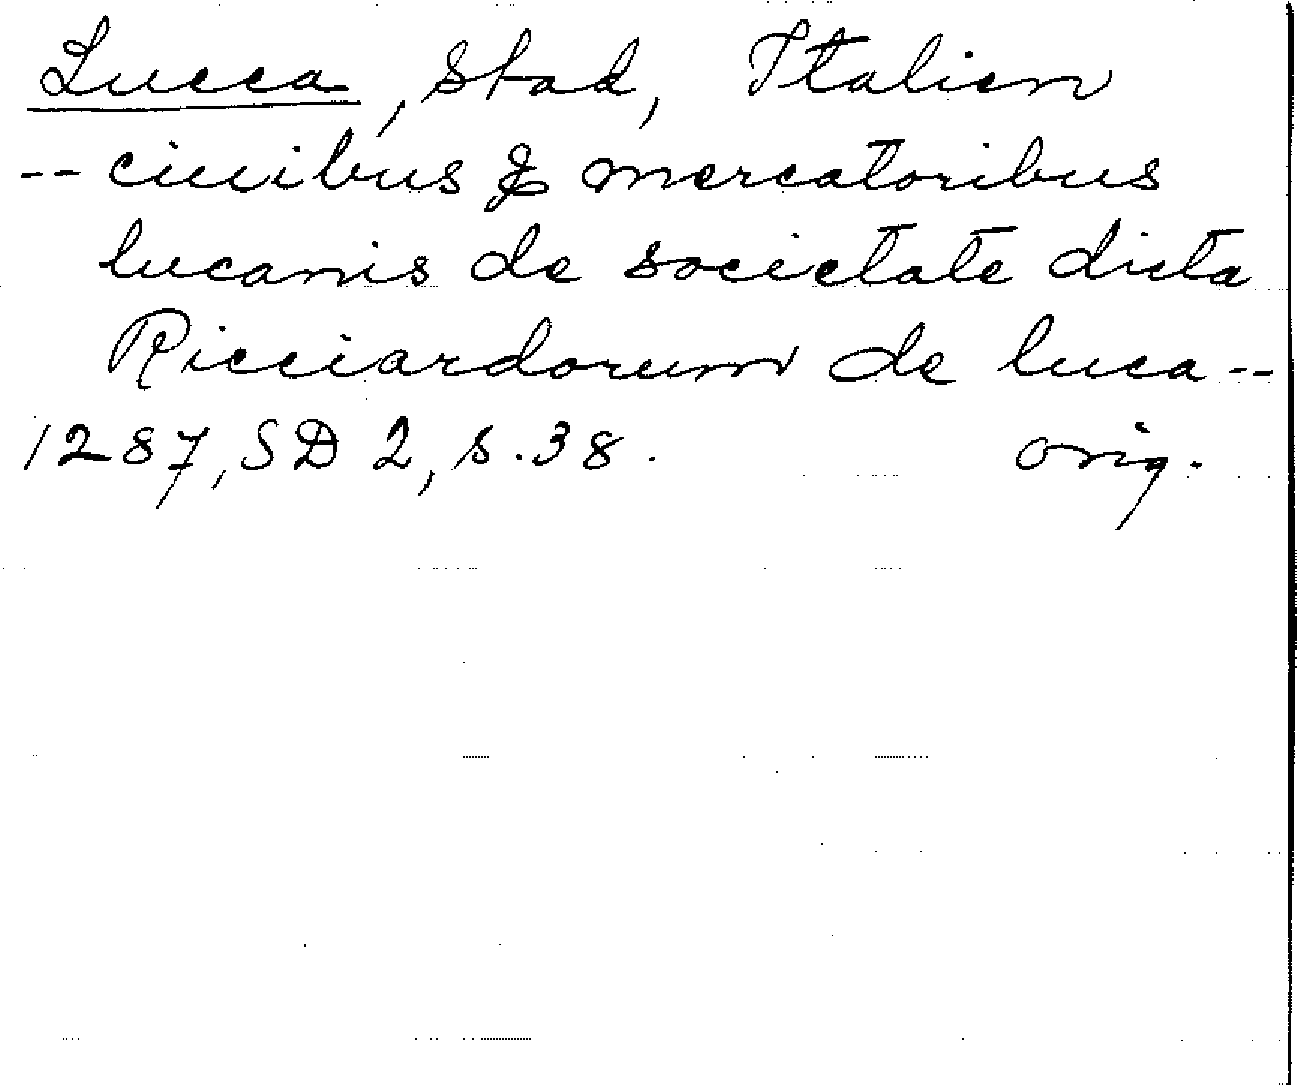 Lucca, Stad, Italien
-- ciuibus & mercatoribus
lucanis de societate dicta
Ricciardorum de luca --
1287, SD 2, s. 38. orig.